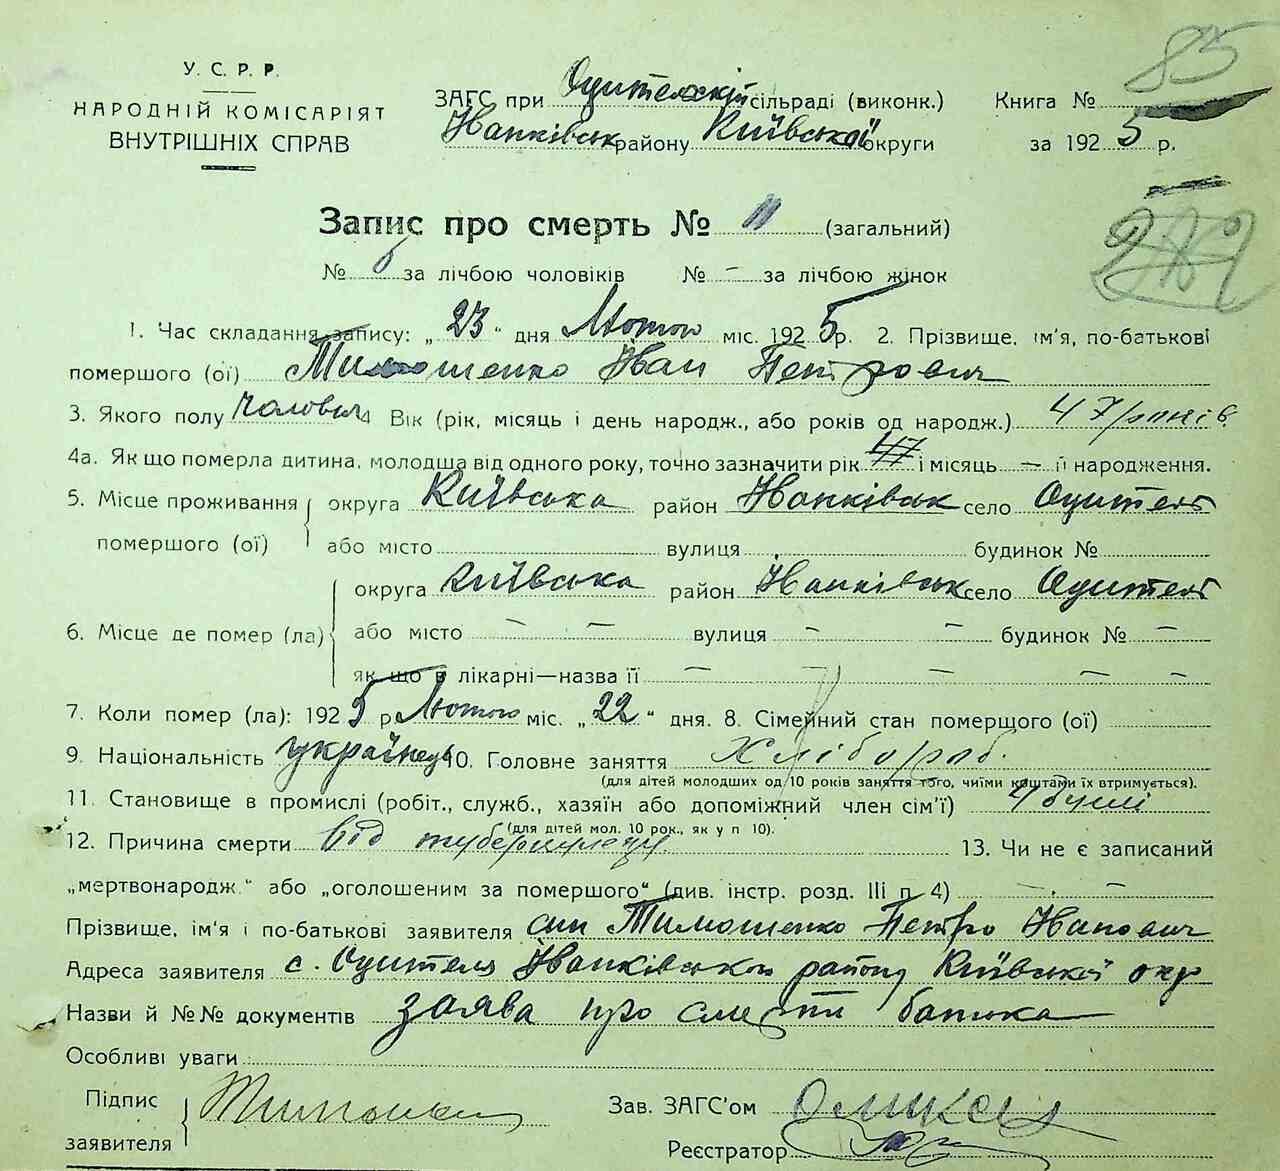 85
У. С. Р. Р.
НАРОДНІЙ КОМІСАРІЯТ
ВНУТРІШНІХ СПРАВ
ЗАГС при Одительскій сільраді (виконк.) Книга №
Іванківськ району Київської округи за 1925 р.
Запис про смерть № 11 (загальний)
№ 6 за лічбою чоловіків № – за лічбою жінок
1. Час складання запису: „23“ дня Лютого міс. 1925 р. 2. Прізвище, ім'я, по-батькові
помершого (ої) Тимошенко Іван Петрович
3. Якого полу чоловіч 4 Вік (рік, місяць і день народж., або років од народж.) 47 років
4а. Як що померла дитина, молодша від одного року, точно зазначити рік 47 і місяць — її народження.
5. Місце проживання округа Київська район Іванківськ село Одитель
помершого (ої) або місто вулиця будинок №
округа Київська район Іванківськ село Одитель
6. Місце де помер (ла) або місто – – вулиця – – будинок № –
як що в лікарні—назва її – – – – –
7. Коли помер (ла): 1925 р Лютого міс. „22“ дня. 8. Сімейний стан померщого (ої)
9. Національність українець 10. Головне заняття хлібороб.
(для дітей молодших од 10 років заняття того, чиїми коштами їх втримується).
11. Становище в промислі (робіт., служб., хазяїн або допоміжний член сім'ї)
(для дітей мол. 10 рок., як у п 10).
12. Причина смерти від туберкульозу. 13. Чи не є записаний
„мертвонародж.“ або „оголошеним за помершого“ (див. інстр. розд. III п 4) – –
Прізвище, ім'я і по-батькові заявителя син Тимошенко Петро Іванович
Адреса заявителя с. Одителя Іванківського району Київської окр
Назви й №№ документів заява про смерть батька
Особливі уваги
Підпис
заявителя Тимошен
Зав. ЗАГС'ом
Реєстратор